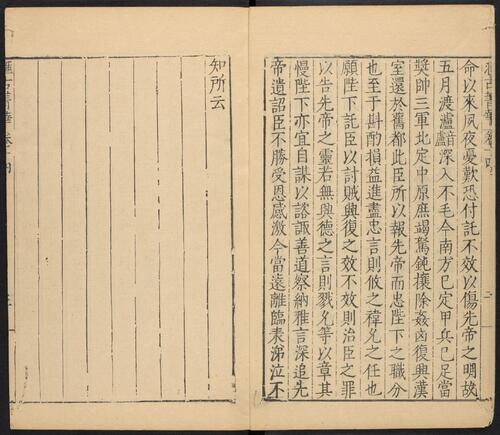 命以來夙夜憂歎恐付託不效以傷先帝之明故
五月渡瀘深入不毛今南方已定甲兵已足當
獎帥三軍北定中原庶竭駑鈍攘除姦凶復興漢
室還於舊都此臣所以報先帝而忠陛下之職分
也至于斟酌損益進盡忠言則攸之禕允之任也
願陛下託臣以討賊興復之效不效則治臣之罪
以告先帝之靈若無興德之言則戮允等以章其
慢陛下亦宜自謀以諮諏善道察納雅言深追先
帝遺詔臣不勝受恩感激今當遠離臨表涕泣不
知所云